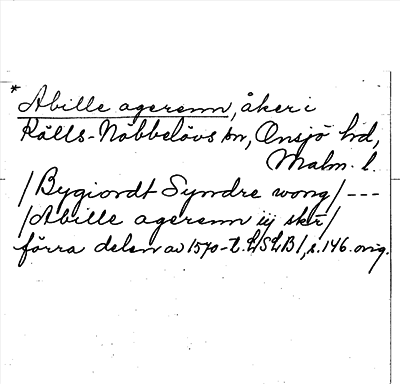 * Abille agerenn, åker i
Källs-Nöbbelövs sn, Onsjö hd,
Malm. l.
/Bygiordt Syndre wong/ ---
/Abille agerenn iij sker/
förra delen av 1570-t. LSLB1, s. 146. orig.